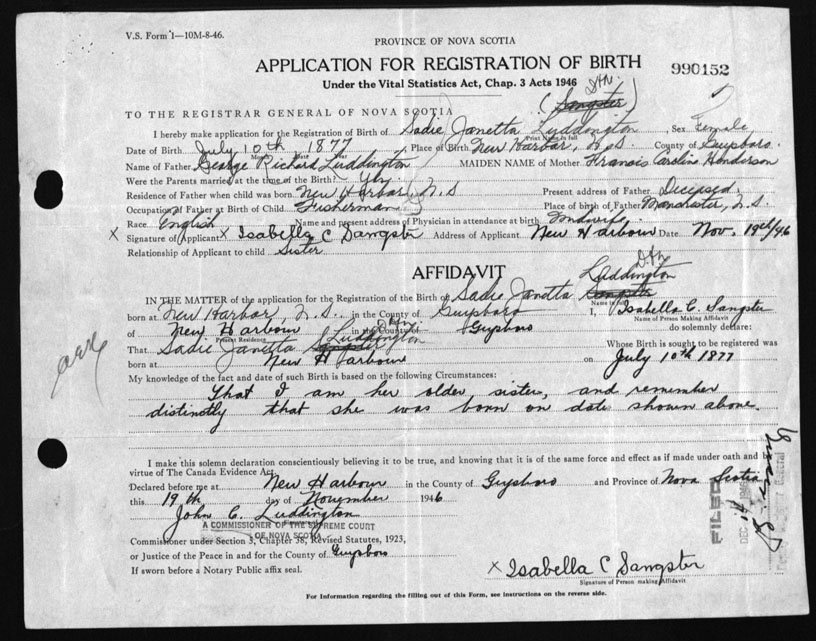 V.S. Form 1—10M-8-46.
PROVINCE OF NOVA SCOTIA
APPLICATION FOR REGISTRATION OF BIRTH
990152
Under the Vital Statistics Act, Chap. 3 Acts 1946
(Sangster)
TO THE REGISTRAR GENERAL OF NOVA SCOTIA
I hereby make application for the Registration of Birth of Sadie Janetta Luddington, Sex Female
Print Name in full
Date of Birth July 10th 1877, Place of Birth New Harbor, N.S. County of Guysboro.
Month Date Year
Name of Father George Richard Luddington MAIDEN NAME of Mother Francis Caroline Henderson
Were the Parents married at the time of the Birth? Yes
Residence of Father when child was born New Harbor, N.S Present address of Father Deceased.
Occupation of Father at Birth of Child Fisherman Place of birth of Father Manchester, N.S.
Race English Name and present address of Physician in attendance at birth midwife.
X Signature of Applicant X Isabella C Sangster Address of Applicant New Harbour Date Nov. 19th/46
Relationship of Applicant to child Sister
AFFIDAVIT
Luddington
IN THE MATTER of the application for the Registration of the Birth of Sadie Janetta Sangster
Name in full
born at New Harbor, N.S., in the County of Guysboro I, Isabella C. Sangster
Name of Person Making Affidavit
of New Harbour in the County of Guysboro do solemnly declare:
Present Residence
Luddington
That Sadie Janetta Sangster Whose Birth is sought to be registered was
born at New Harbour on July 10th 1877
My knowledge of the fact and date of such Birth is based on the following Circumstances:
That I am her older sister, and remember
distinctly that she was born on date shown above.
I make this solemn declaration conscientiously believing it to be true, and knowing that it is of the same force and effect as if made under oath and by
virtue of The Canada Evidence Act.
Declared before me at New Harbour in the County of Guysboro and Province of Nova Scotia
this 19th day of November 1946
John C. Luddington
A COMMISSIONER OF THE SUPREME COURT
OF NOVA SCOTIA
Commissioner under Section 3, Chapter 38, Revised Statutes, 1923,
or Justice of the Peace in and for the County of Guysboro
If sworn before a Notary Public affix seal.
X Isabella C Sangster
Signature of Person making Affidavit
For Information regarding the filling out of this Form, see instructions on the reverse side.
FILED